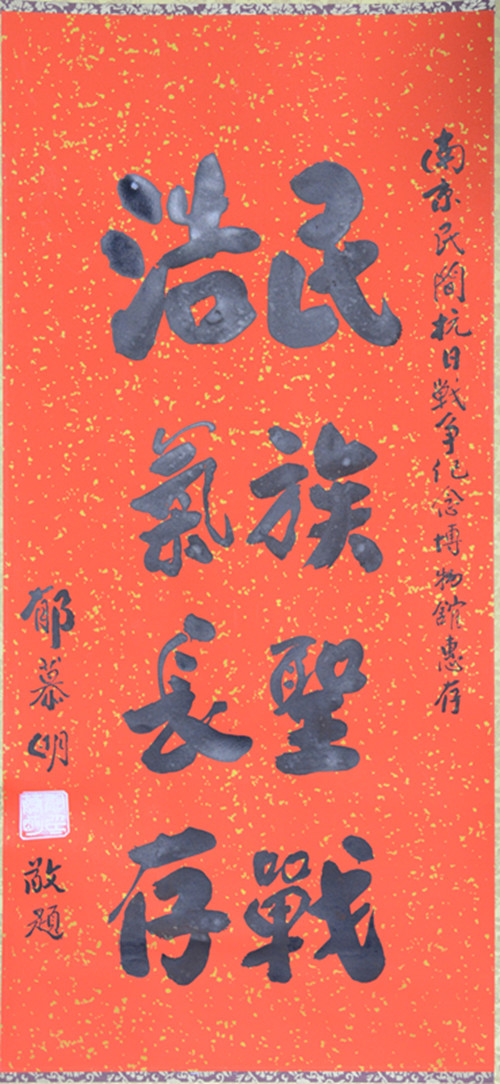 南京民間抗日戰爭纪念博物館惠存
民族聖戰
浩氣長存
郁慕明
敬題